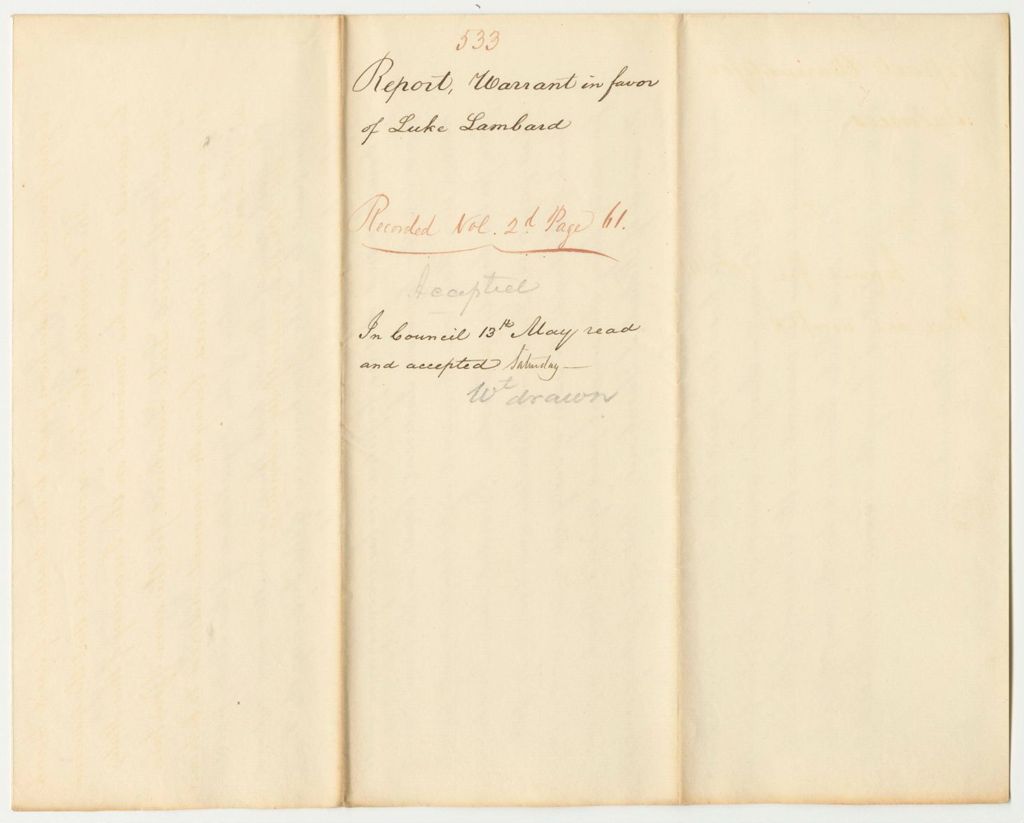 533
Report, Warrant in favor
of Luke Lambard
Recorded Vol. 2d Page 61.
Accepted
In Council 13th May read
and accepted Saturday—
Wt drawn